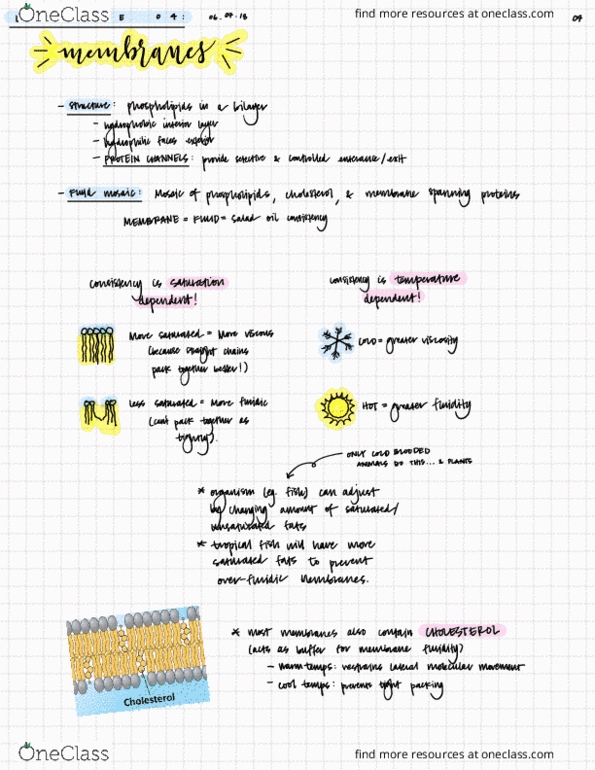 OneClass
find more resources at oneclass.com
E 04: 06.04.18 04
membranes
- structure: phospholipids in a bilayer
- hydrophobic interior layer
- hydrophilic faces exterior
- PROTEIN CHANNELS: provide selective & controlled enterance/exit
- Fluid mosaic: Mosaic of phospholipids, cholesterol, & membrane spanning proteins
MEMBRANE = FLUID = Salad oil consistency
consistency is saturation
dependent!
consistency is temperature
dependent!
More saturated = More viscous
(because straight chains
pack together better!)
COLD = greater viscosity
Less saturated = More fluidic
(cant pack together as
tightly).
HOT = greater fluidity
ONLY COLD BLOODED
ANIMALS DO THIS... & PLANTS
* organism (eg. fish) can adjust
by changing amount of saturated/
unsaturated fats
* tropical fish will have more
saturated fats to prevent
over-fluidic membranes.
* most membranes also contain CHOLESTEROL
(acts as buffer for membrane fluidity)
- warm temps: restrains lateral molecular movement
- cool temps: prevents tight packing
Cholesterol
OneClass
find more resources at oneclass.com